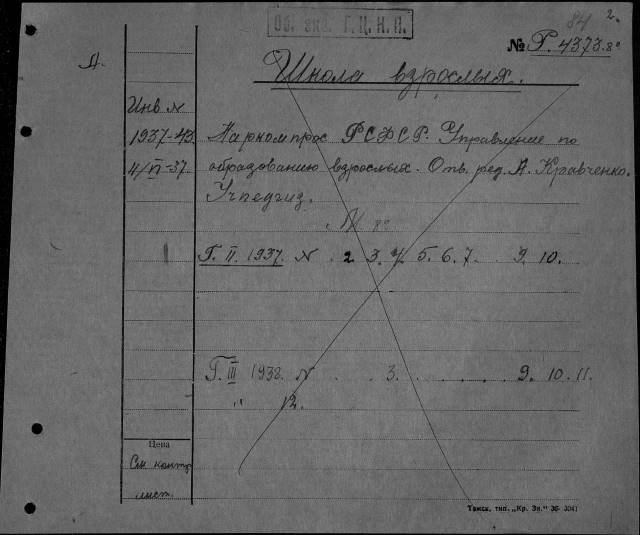 Об. экз. Г.Ц.К.П.
84 2.
№ Г. 4373.8°
Д.
Школа взрослых.
Инв N
1937-43
4/VI-37.
Наркомпрос РСФСР. Управление по
образованию взрослых. Отв. ред. А. Кравченко.
Учпедгиз.
Г. II. 1937. N . 2 3. 4. 5. 6. 7. . 9. 10.
Г. III 1938. N . . 3. . . . . . 9. 10. 11.
" 12.
Цена
См контр
лист.
Тамск. тип. „Кр. Зн." 36-304)